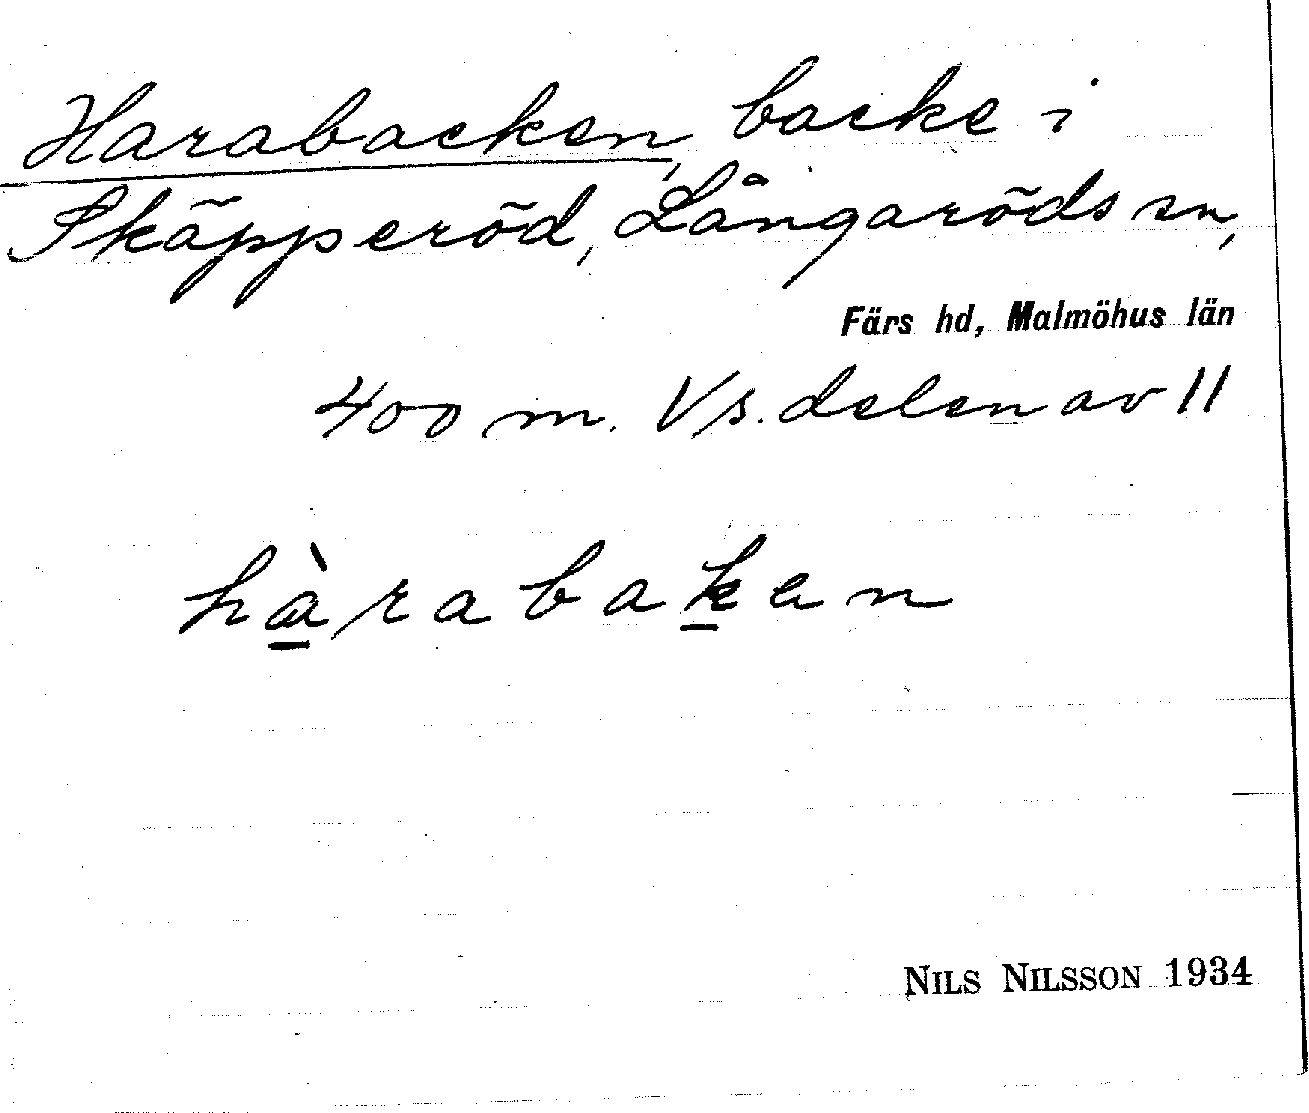 Harabacken, backe i
Skäpperöd, Långaröds sn,
Färs hd, Malmöhus län
400 m. V/s. delen av 11
hàrabaken
NILS NILSSON 1934